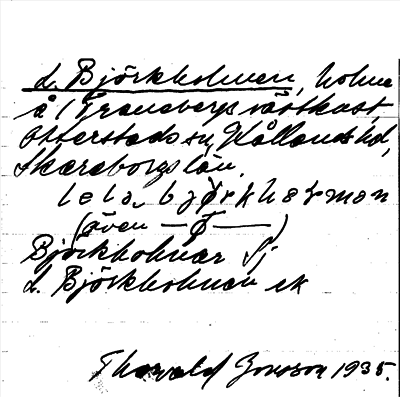 L. Björkholmen, holme
å (Traneberg) västkust,
Otterstads sn, Kållands hd,
Skaraborgs län.
(även — ø — )
Björkholmar Sj
L. Björkholmen ek
Thorvald Jonsson 1935.